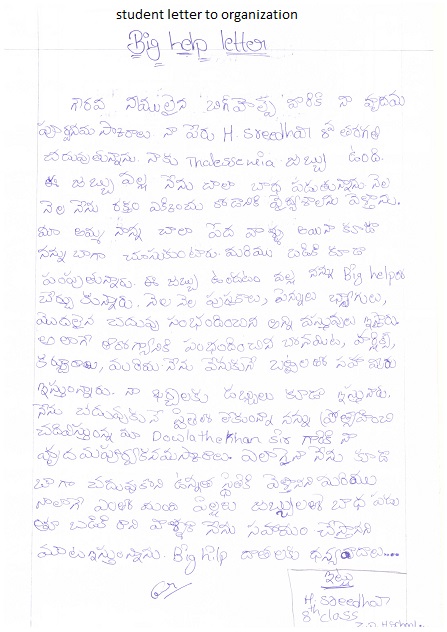 student letter to organization
Big help letter
గౌరవ నీయులైన బిగ్ హెల్ప్ వారికి నా హృదయ
పూర్వక నమస్కారాలు నా పేరు H. Sreedhar 8వ తరగతి
చదువుతున్నాను. నాకు Thalessemia జబ్బు ఉంది.
ఈ జబ్బు వల్ల నేను చాలా బాధ పడుతున్నాను నెల
నెల నేను రక్తం ఎక్కించు
మా అమ్మ నాన్న చాలా పేద వాళ్ళు అయినా కూడా
నన్ను బాగా చూసుకుంటారు. మరియు బడికి కూడా
పంపుతున్నారు. ఈ జబ్బు ఉండటం వల్ల నన్ను Big helpలో
చేర్చు కున్నారు. నెల నెల పుస్తకాలు, పెన్నులు బ్యాగులు,
మొదలైన చదువు సంభందించిన అన్ని వస్తువులు ఇస్తారు.
అలాగే ఆరోగ్యానికి సంభందించిన
మరియు నేను వేసుకునే బట్టలతో సహా మాకు
ఇస్తున్నారు. నా ఖర్చులకు డబ్బులు కూడా ఇస్తున్నారు.
నేను చదువుకునే లేకున్నా నన్ను ప్రోత్సాహించి
చదివిస్తున్న మా Dowlathekhan sir గారికి నా
హృదయపూర్వకనమస్కారాలు. ఎలాగైనా నేను కూడా
బాగా చదువుకొని ఉన్నత స్థితికి వెళ్తానని మరియు
నాలాగే ఎంతో మంది పిల్లలు జబ్బులతో బాధ పడు
తూ బడికి రాని వాళ్ళకి నేను సహాయం చేస్తానని
మాటఇస్తున్నాను. Big help దాతలకు ధన్యవాదాలు...
ఇట్లు
H. Sreedhar
8th class
Z.P. H School